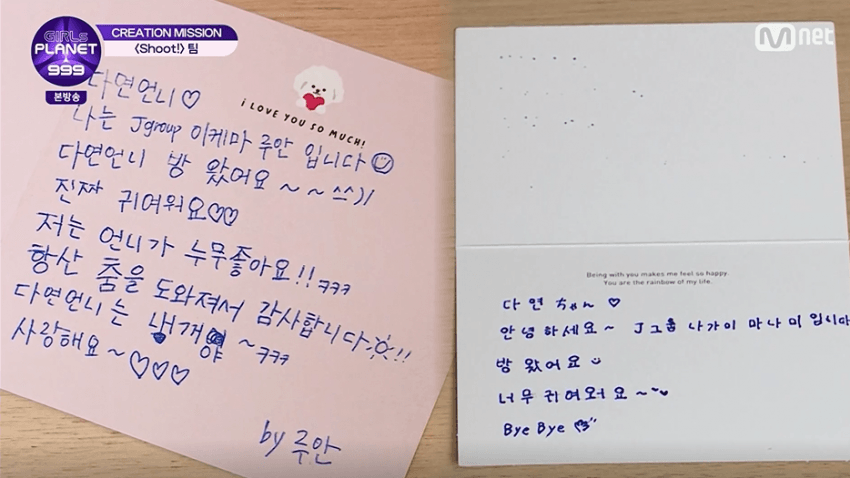 GIRLS
PLANET
999
본방송
CREATION MISSION
<Shoot!> 팀
Mnet
i LOVE YOU SO MUCH!
다연언니♡
나는 Jgroup 이케마 루안 입니다
다연언니 방 왔어요 ~~ ^^))
진짜 귀여워요♡♡
저는 언니가 누무좋아요!! ㅋㅋㅋ
항산 춤을 도와져서 감사합니다!!
다연언니는 내꺼야 ~ ㅋㅋㅋ
사랑해요~♡♡♡
by 루안
Being with you makes me feel so happy.
You are the rainbow of my life.
다연 ちゃん ♡
안녕하세요~ J그룹 나가이 마나미 입니다
방 왔어요
너무 귀여워요 ~~
Bye Bye